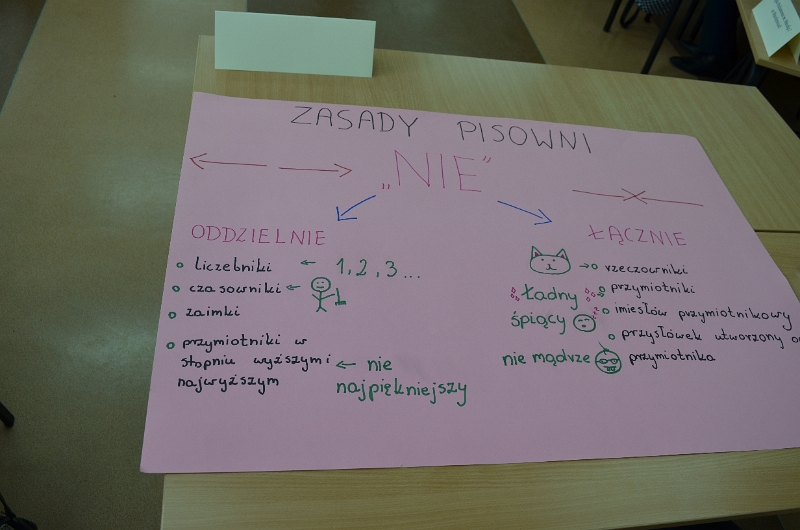 ZASADY PISOWNI
„NIE”
ODDZIELNIE
liczebniki ← 1, 2, 3 ...
czasowniki ←
zaimki
przymiotniki w
stopniu wyższym i
najwyższym
← nie
najpiękniejszy
ŁĄCZNIE
→ rzeczowniki
Ładny
przymiotniki
śpiący
imiesłów przymiotnikowy
przysłówek utworzony
przymiotnika
nie mądrze